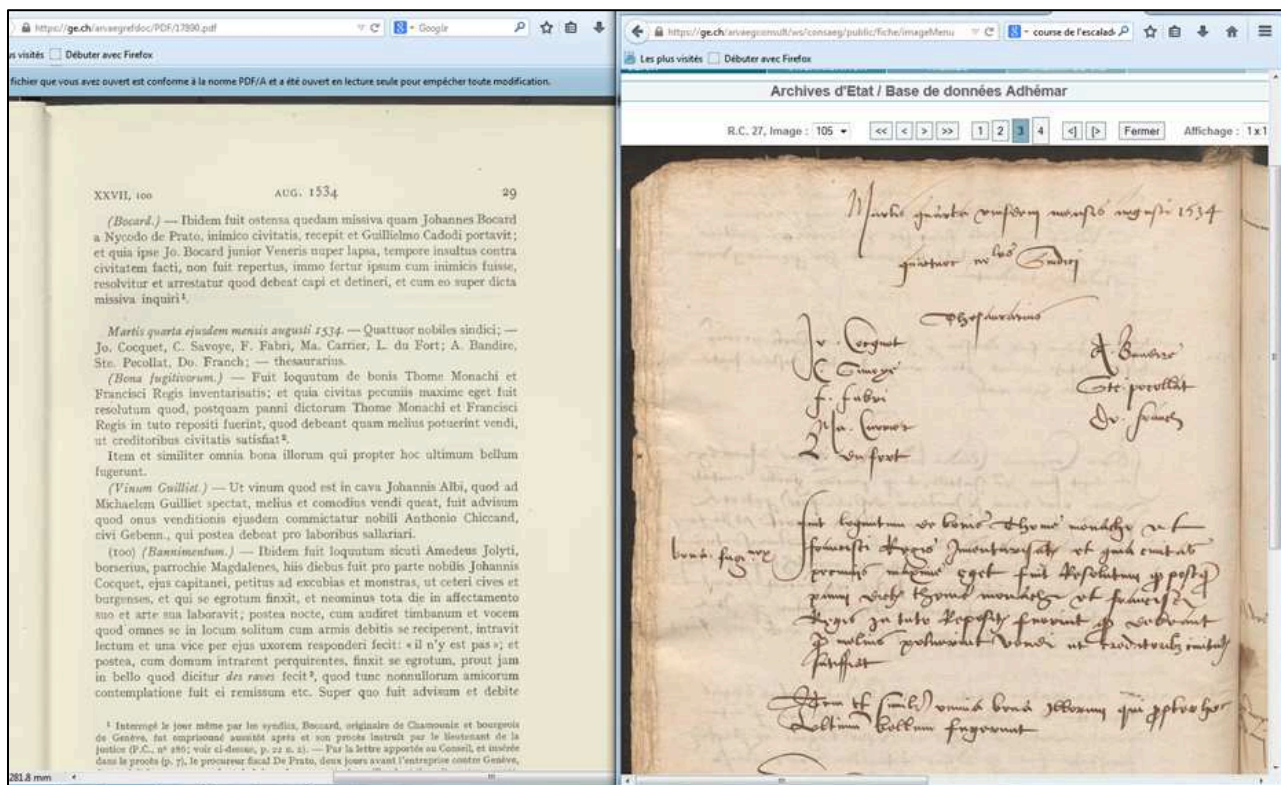 https://ge.ch/arvaegrefdoc/PDF/17890.pdf
Google
us visités Débuter avec Firefox
fichier que vous avez ouvert est conforme à la norme PDF/A et a été ouvert en lecture seule pour empêcher toute modification.
XXVII, 100 AUG. 1534 29
(Bocard.) — Ibidem fuit ostensa quedam missiva quam Johannes Bocard
a Nycodo de Prato, inimico civitatis, recepit et Guillielmo Cadodi portavit;
et quia ipse Jo. Bocard junior Veneris nuper lapsa, tempore insultus contra
civitatem facti, non fuit repertus, immo fertur ipsum cum inimicis fuisse,
resolvitur et arrestatur quod debeat capi et detineri, et cum eo super dicta
missiva inquiri¹.
Martis quarta ejusdem mensis augusti 1534. — Quattuor nobiles sindici; —
Jo. Cocquet, C. Savoye, F. Fabri, Ma. Carrier, L. du Fort; A. Bandire,
Ste. Pecollat, Do. Franch; — thesaurarius.
(Bona fugitivorum.) — Fuit loquutum de bonis Thome Monachi et
Francisci Regis inventarisatis; et quia civitas pecuniis maxime eget fuit
resolutum quod, postquam panni dictorum Thome Monachi et Francisci
Regis in tuto repositi fuerint, quod debeant quam melius potuerint vendi,
ut creditoribus civitatis satisfiat².
Item et similiter omnia bona illorum qui propter hoc ultimum bellum
fugerunt.
(Vinum Guilliet.) — Ut vinum quod est in cava Johannis Albi, quod ad
Michaelem Guilliet spectat, melius et comodius vendi queat, fuit advisum
quod onus venditionis ejusdem commictatur nobili Anthonio Chiccand,
civi Gebenn., qui postea debeat pro laboribus sallariari.
(100) (Bannimentum.) — Ibidem fuit loquutum sicuti Amedeus Jolyti,
borserius, parrochie Magdalenes, hiis diebus fuit pro parte nobilis Johannis
Cocquet, ejus capitanei, petitus ad excubias et monstras, ut ceteri cives et
burgenses, et qui se egrotum finxit, et neominus tota die in affectamento
suo et arte sua laboravit; postea nocte, cum audiret timbanum et vocem
quod omnes se in locum solitum cum armis debitis se reciperent, intravit
lectum et una vice per ejus uxorem responderi fecit: «il n'y est pas»; et
postea, cum domum intrarent perquirentes, finxit se egrotum, prout jam
in bello quod dicitur des raves fecit³, quod tunc nonnullorum amicorum
contemplatione fuit ei remissum etc. Super quo fuit advisum et debite
¹ Interrogé le jour même par les syndics, Boccard, originaire de Chamounix et bourgeois
de Genève, fut emprisonné aussitôt après et son procès instruit par le lieutenant de la
justice (P.C., n° 286; voir ci-dessus, p. 22 n. 2). — Par la lettre apportée au Conseil, et insérée
dans le procès (p. 7), le procureur fiscal De Prato, deux jours avant l'entreprise contre Genève,
281.8 mm
https://ge.ch/arvaegconsult/ws/consaeg/public/fiche/imageMenu
course de l'escalad
Les plus visités Débuter avec Firefox
Archives d'Etat / Base de données Adhémar
R.C. 27, Image : 105 << < > >> 1 2 3 4 <] [> Fermer Affichage : 1x1
Martis quarta eiusdem mensis augusti 1534
Sindici
Thesaurarius
Jo. Cocquet
C. Savoye
F. Fabri
Ma. Carrier
L. du fort
A. Bandire
Ste. pecollat
Do. franch
fuit loquutum de bonis Thome monachi et
francisci Regis Inventarisatis et quia civitas
pecuniis maxime eget fuit Resolutum
francisci
Regis In tuto Repositi fuerint
melius potuerint vendi ut creditoribus
satisfiat
Item et omnia bona Illorum qui propter hoc
ultimum bellum fugerunt